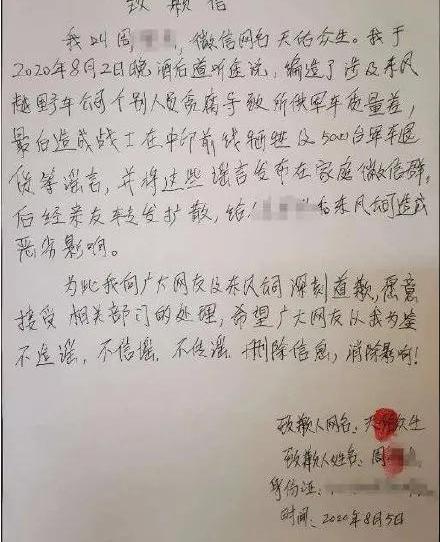 致歉信
我叫周 ，微信网名天佑众生。我于
2020年8月2日晚酒后道听途说，编造了涉及东风
越野车公司个别人员贪腐导致所供军车质量差，
最后造成战士在中印前线牺牲及5000台军车退
货等谣言，并将这些谣言发布在家庭微信群，
后经亲友转发扩散，给 东风公司造成
恶劣影响。
为此我向广大网友及东风公司深刻道歉，愿意
接受相关部门的处理，希望广大网友以我为鉴
不造谣，不信谣，不传谣，删除信息，消除影响！
致歉人网名：天佑众生
致歉人姓名：周
身份证：
时间：2020年8月5日